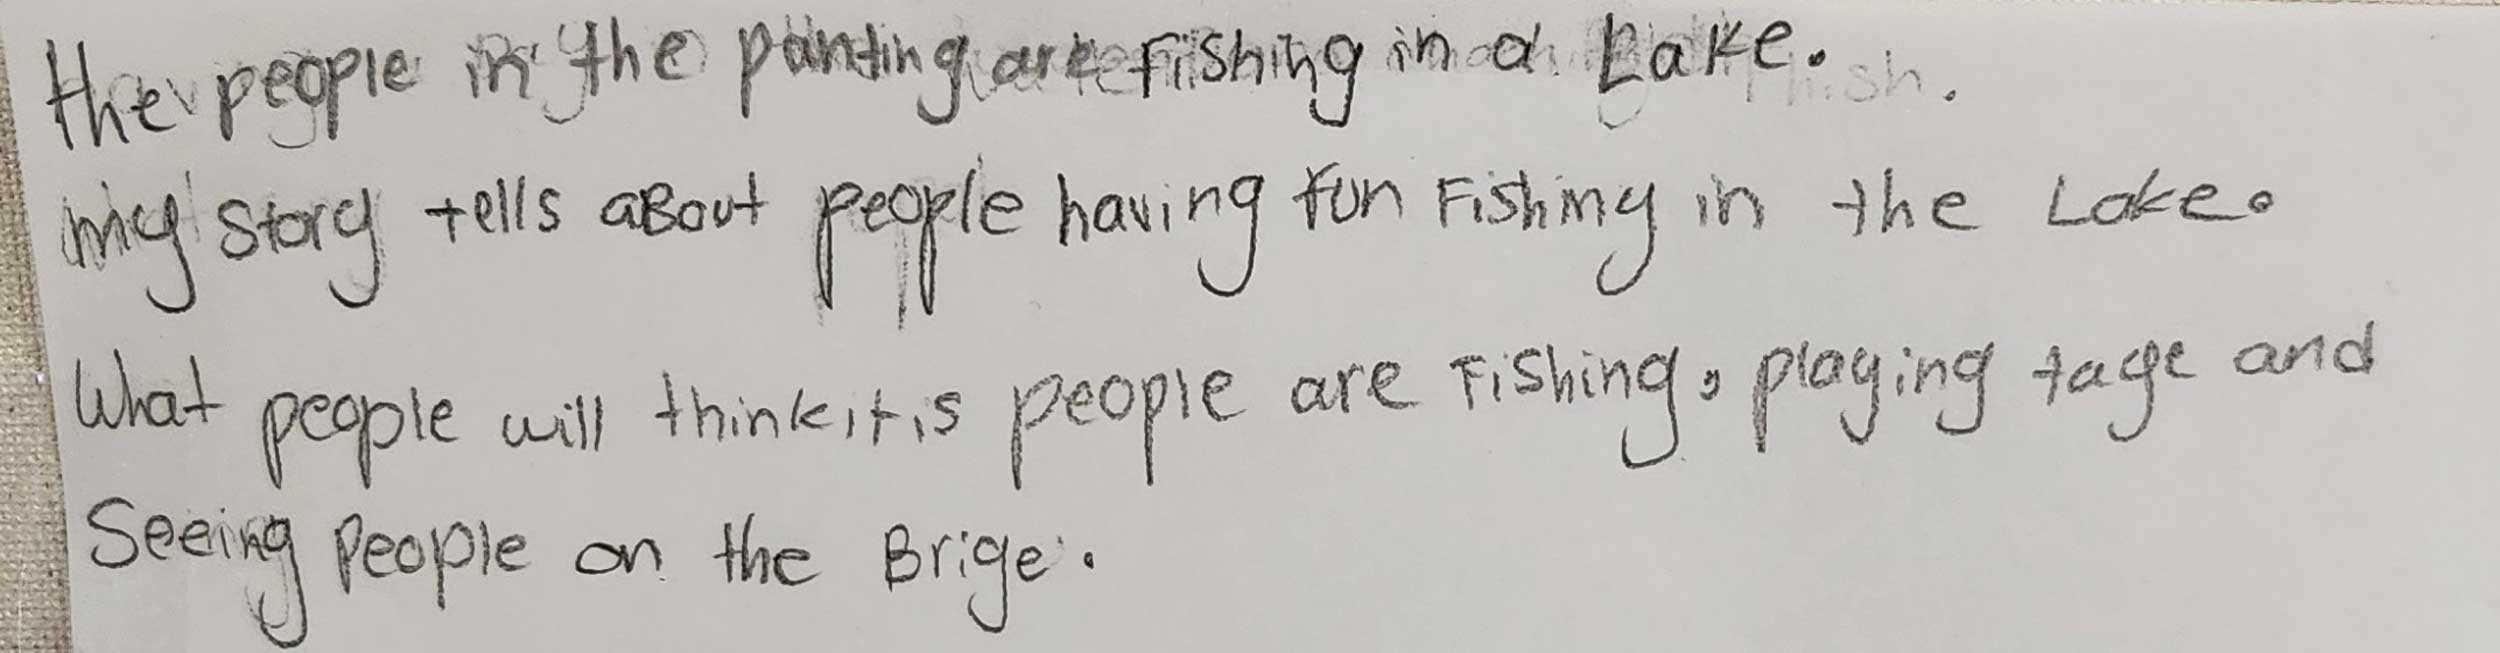 the people in the painting are Fishing in a Lake.
my story tells aBout people having fun Fishing in the Lake.
What people will think it is people are Fishing, playing tage and
Seeing People on the Brige.